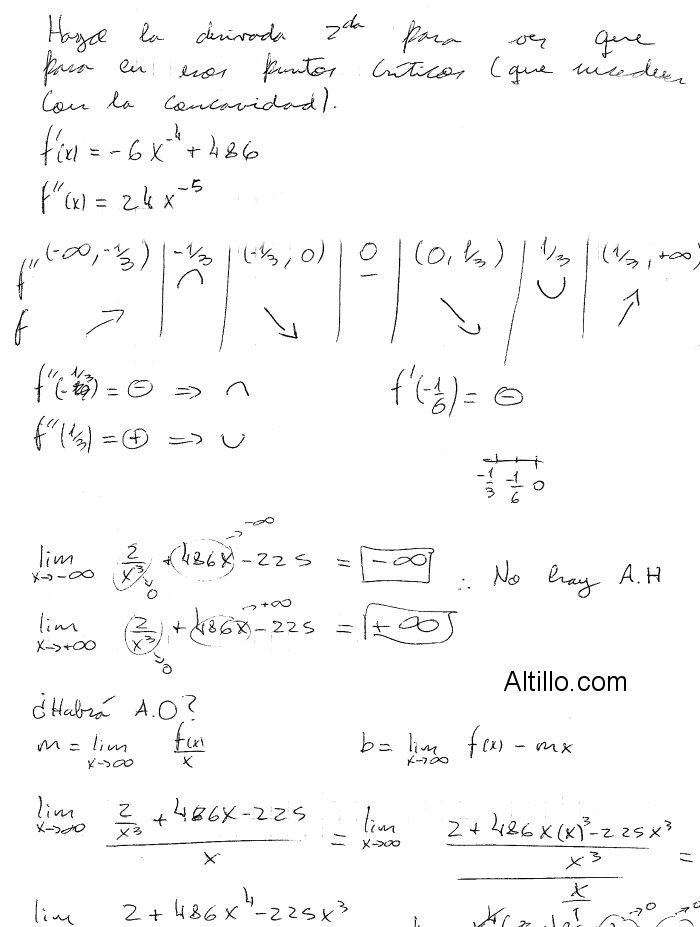 Hago la derivada 2da para ver que
pasa en esos puntos criticos (que sucede
con la concavidad).
f'(x) = -6x^-4 + 486
f''(x) = 24x^-5
f'' (-∞, -1/3) | -1/3 | (-1/3, 0) | 0 | (0, 1/3) | 1/3 | (1/3, +∞)
∩ — ∪
f ↗ ↘ ↘ ↗
f''(-1/3) = ⊖ ⇒ ∩ f'(-1/6) = ⊖
f''(1/3) = ⊕ ⇒ ∪
-1/3 -1/6 0
lim x→-∞ 2/x³ →0 + 486x →-∞ - 225 = -∞ ∴ No hay A.H
lim x→+∞ 2/x³ →0 + 486x →+∞ - 225 = +∞
Altillo.com
¿Habrá A.O?
m = lim x→∞ f(x)/x b = lim x→∞ f(x) - mx
lim x→∞ (2/x³ + 486x - 225)/x = lim x→∞ ((2 + 486x(x)³ - 225x³)/x³)/(x/1) =
lim 2 + 486x⁴ - 225x³ →0 →0